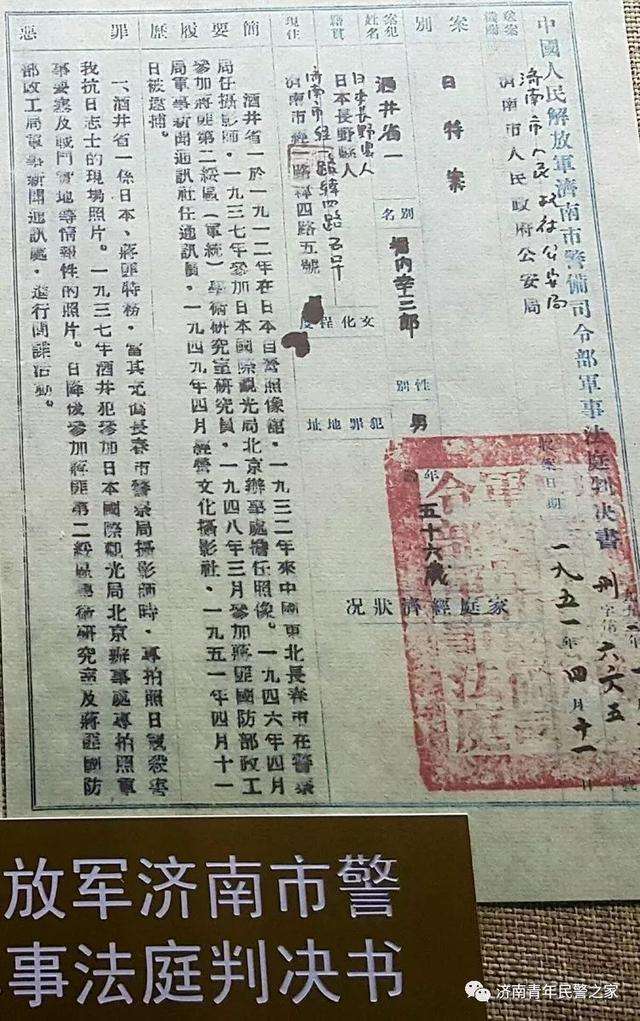 中國人民解放軍濟南市警備司令部軍事法庭判决書
刑字第六六五
一九五一年四月十一日
破案機關
濟南市人民政府公安局
濟南市人民政府公安局
案別
日特案
案犯姓名
酒井省一
別名
堀内幸三郎
性別
男
五十六歲
籍貫
日本長野縣人
日本長野縣人
文化程度
現住
濟南市經一路緯四路五號
犯罪地址
家庭經濟狀况
簡要履歷
酒井省一於一九一二年在日本自營照像舘。一九三二年來中國東北長春市在警察
局任攝影師。一九三七年參加日本國際觀光局北京辦事處擔任照像。一九四六年四月
參加蔣匪第二綏區(軍統)學術研究室研究員。一九四八年三月參加蔣匪國防部政工
局軍事新聞通訊社任通訊員。一九四九年四月經營文化攝影社。一九五一年四月十一
日被逮捕。
罪惡
一、酒井省一係日本、蔣匪特務,當其充僞長春市警察局攝影師時,專拍照日寇殺害
我抗日志士的現場照片。一九三七年酒井犯參加日本國際觀光局北京辦事處專拍照軍
事要塞及戰鬥實地等情報性的照片。日降後參加蔣匪第二綏區學術研究室及蔣匪國防
部政工局軍事新聞通訊處,進行間諜活動。
放军济南市警
事法庭判决书
济南青年民警之家